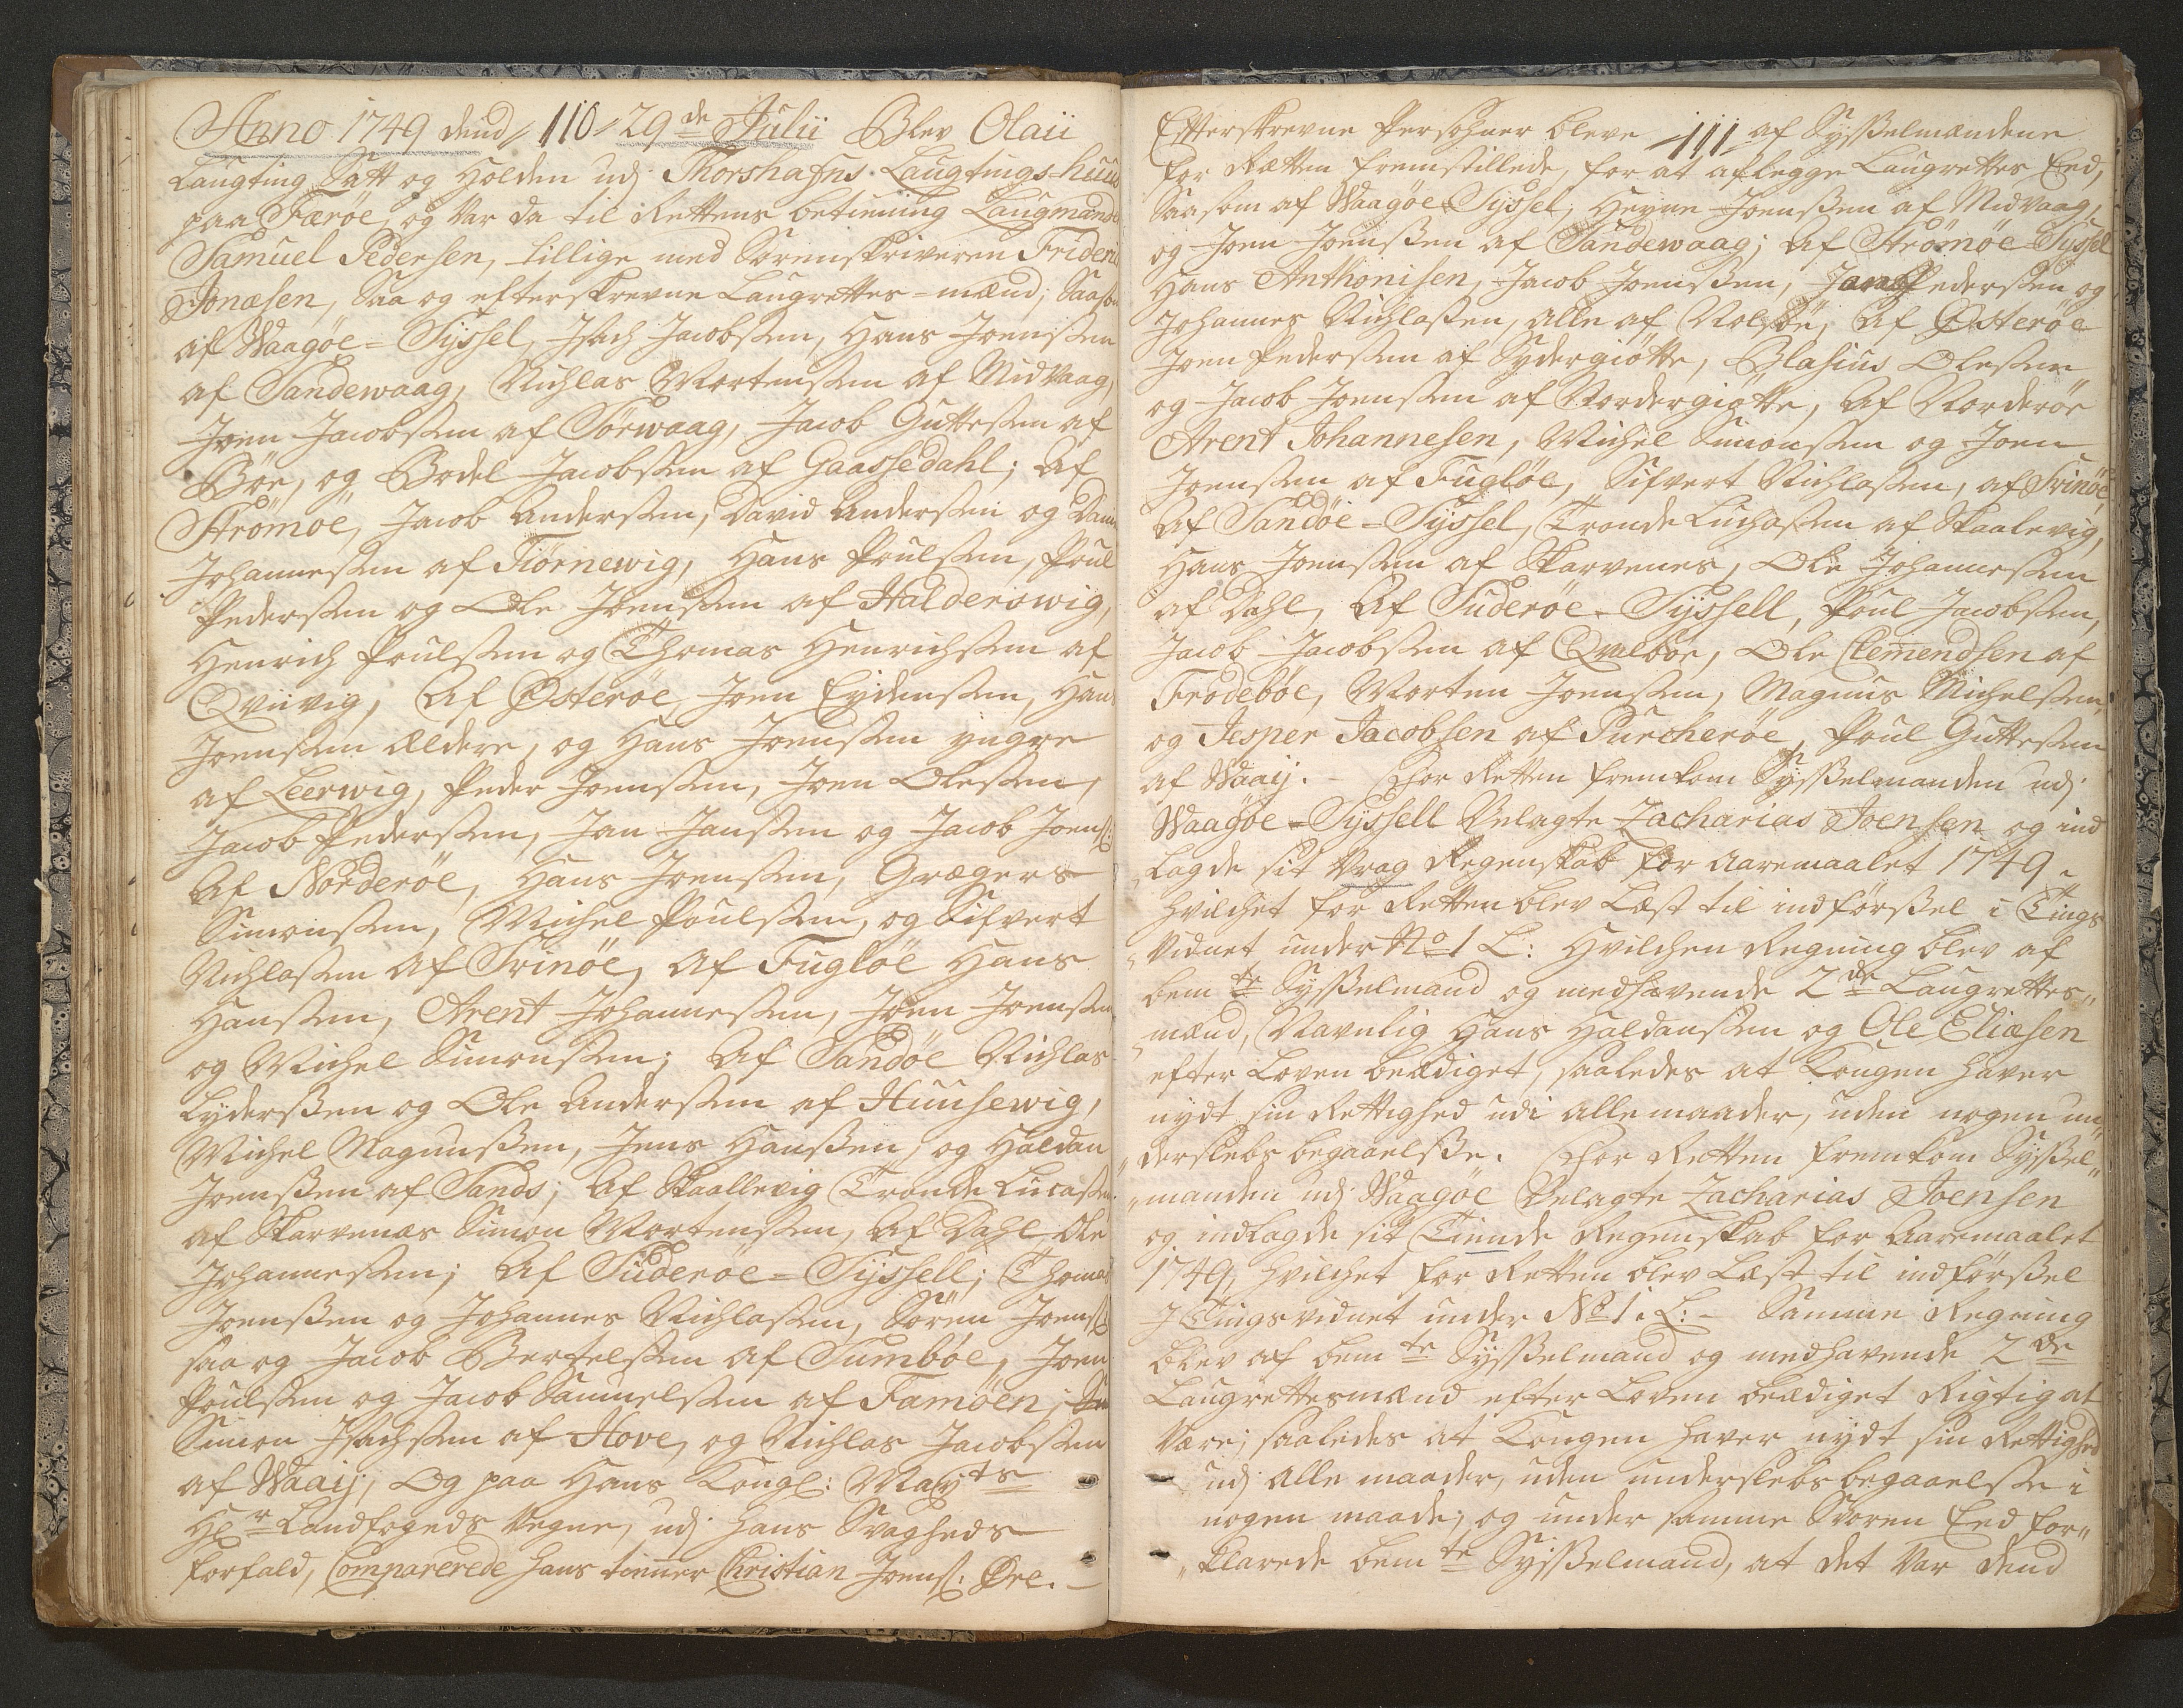 Anno 1749 dend 29de Julii Blev Olaii
110
Laugting Satt og Holden udj Thorshafns Laugtings-huus
paa Færøe, og Var da til Rettens betiening Laugmand
Samuel Pedersen, tillige med Sorenskriveren Frideric
Jonæsen, Saa og efterskrevne Laugrettes-mænd; Saasom
af Waagøe-Sÿssel, Isach Jacobsen, Hans Joensen
af Sandewaag, Nichlas Mortensen af Midvaag,
Joen Jacobsen af Sørwaag, Jacob Guttesen af
Bøe, og Bodel Jacobsen af Gaassedahl; Af
Strømøe, Jacob Andersen, David Andersen og
Johannesen af Tiørnewig, Hans Poulsen, Poul
Pedersen og Ole Joensen af Halderswig,
Henrich Poulsen og Thomas Henrichsen af
Qviivig, Af Østerøe, Joen Eÿdensen, Hans
Joensen ældere, og Hans Joensen yngre
af Leerwig, Peder Joensen, Joen Olesen,
Jacob Pedersen, Jan Jansen og Jacob Joens:
Af Norderøe, Hans Joensen, Grægers
Simonsen, Michel Poulsen, og Sifvert
Nichlasen af Svinøe, Af Fugløe Hans
Hansen, Arent Johannesen, Joen Joensen
og Michel Simonsen; Af Sandøe Nichlas
Lÿdersen og Ole Andersen af Huusewig,
Michel Magnussen, Jens Hanssen, og Haldan
Joenssen af Sands; Af Skaallevig Tronde Lucasen
af Skarvenæs Simon Mortensen, Af Dahl Ole
Johannesen; Af Suderøe-Sÿssell; Thomas
Joenssen og Johannes Nichlasen, Søren Joens:
saa og Jacob Bertelsen af Sumbøe, Joen
Poulsen og Jacob Samuelsen af Famöen;
Simon Isachsen af Hove, og Nichlas Jacobsen
af Waaij, Og paa Hans Kongl: Mayts
Hr Landfogeds Vegne, udj hans Svagheds
forfald, Comparerede hans tiener Christian Joens: Øre.-
Efterskrevne Personer bleve af Sÿsselmændene
111
for Rætten fremstillede, for at aflegge Laugrettes Eed,
Saasom af Waagøe-Sÿssel, Heyne Joenssen af Midvaag,
og Joen Joenssen af Sandewaag; Af Strømøe-Sÿssel
Hans Anthonisen, Jacob Joenssen, Pedersen og
Johannes Nichlasen, alle af Nolsöe, Af Østerøe
Joen Pedersen af Sydergiøtte, Blasius Olesen
og Jacob Joensen af Nordergiøtte, Af Norderøe
Arent Johannesen, Michel Simonsen og Joen
Joensen af Fugløe, Sifvert Nichlasen, af Svinøe,
Af Sandøe-Sÿssel, Tronde Luchasen af Skaalevig,
Hans Joensen af Skarvenes, Ole Johannesen
af Dahl, Af Suderøe-Sÿssell, Poul Jacobsen,
Jacob Jacobsen af Qvalbøe, Ole Clemendsen af
Frodebøe, Morten Joensen, Magnus Michelsen,
og Jesper Jacobsen af Purcherøe, Poul Guttesen
af Waaij. - For Retten fremkom Sÿsselmanden udj
Waagøe-Sÿssell Velagte Zacharias Joensen og ind
lagde sit Vrag Regenskab for Aaremaalet 1749
hvilchet for Retten blev Læst til indførssel i Tings
Vidnet under No 1 L: Hvilchen Regning blev af
bemte Sÿsselmand og medhavende 2de Laugrettes„
„mænd, Navnlig Hans Haldansen og Ole Eliæsen
efter Loven beædiget, saaledes at Kongen haver
nydt sin Rettighed udi alle maader, uden nogen un„
„derslebs begaaelsse. For Retten fremkom Sÿssel„
„manden udj Waagøe Velagte Zacharias Joensen
og indlagde sit Tiende Regenskab for Aaremaalet
1749, hvilchet for Retten blev Læst til indførssel
J Tingsvidnet under No 1. L: - Samme Regning
blev af bemte Sÿsselmand og medhavende 2de
Laugrettesmænd efter Loven beædiget Rigtig at
Være; saaledes at Kongen haver nydt sin Rettighed
udj alle maader, uden underslebs begaaelsse i
nogen maade; og under samme Svoren Eed for„
„klarede bemte Sÿsselmand, at det Var dend